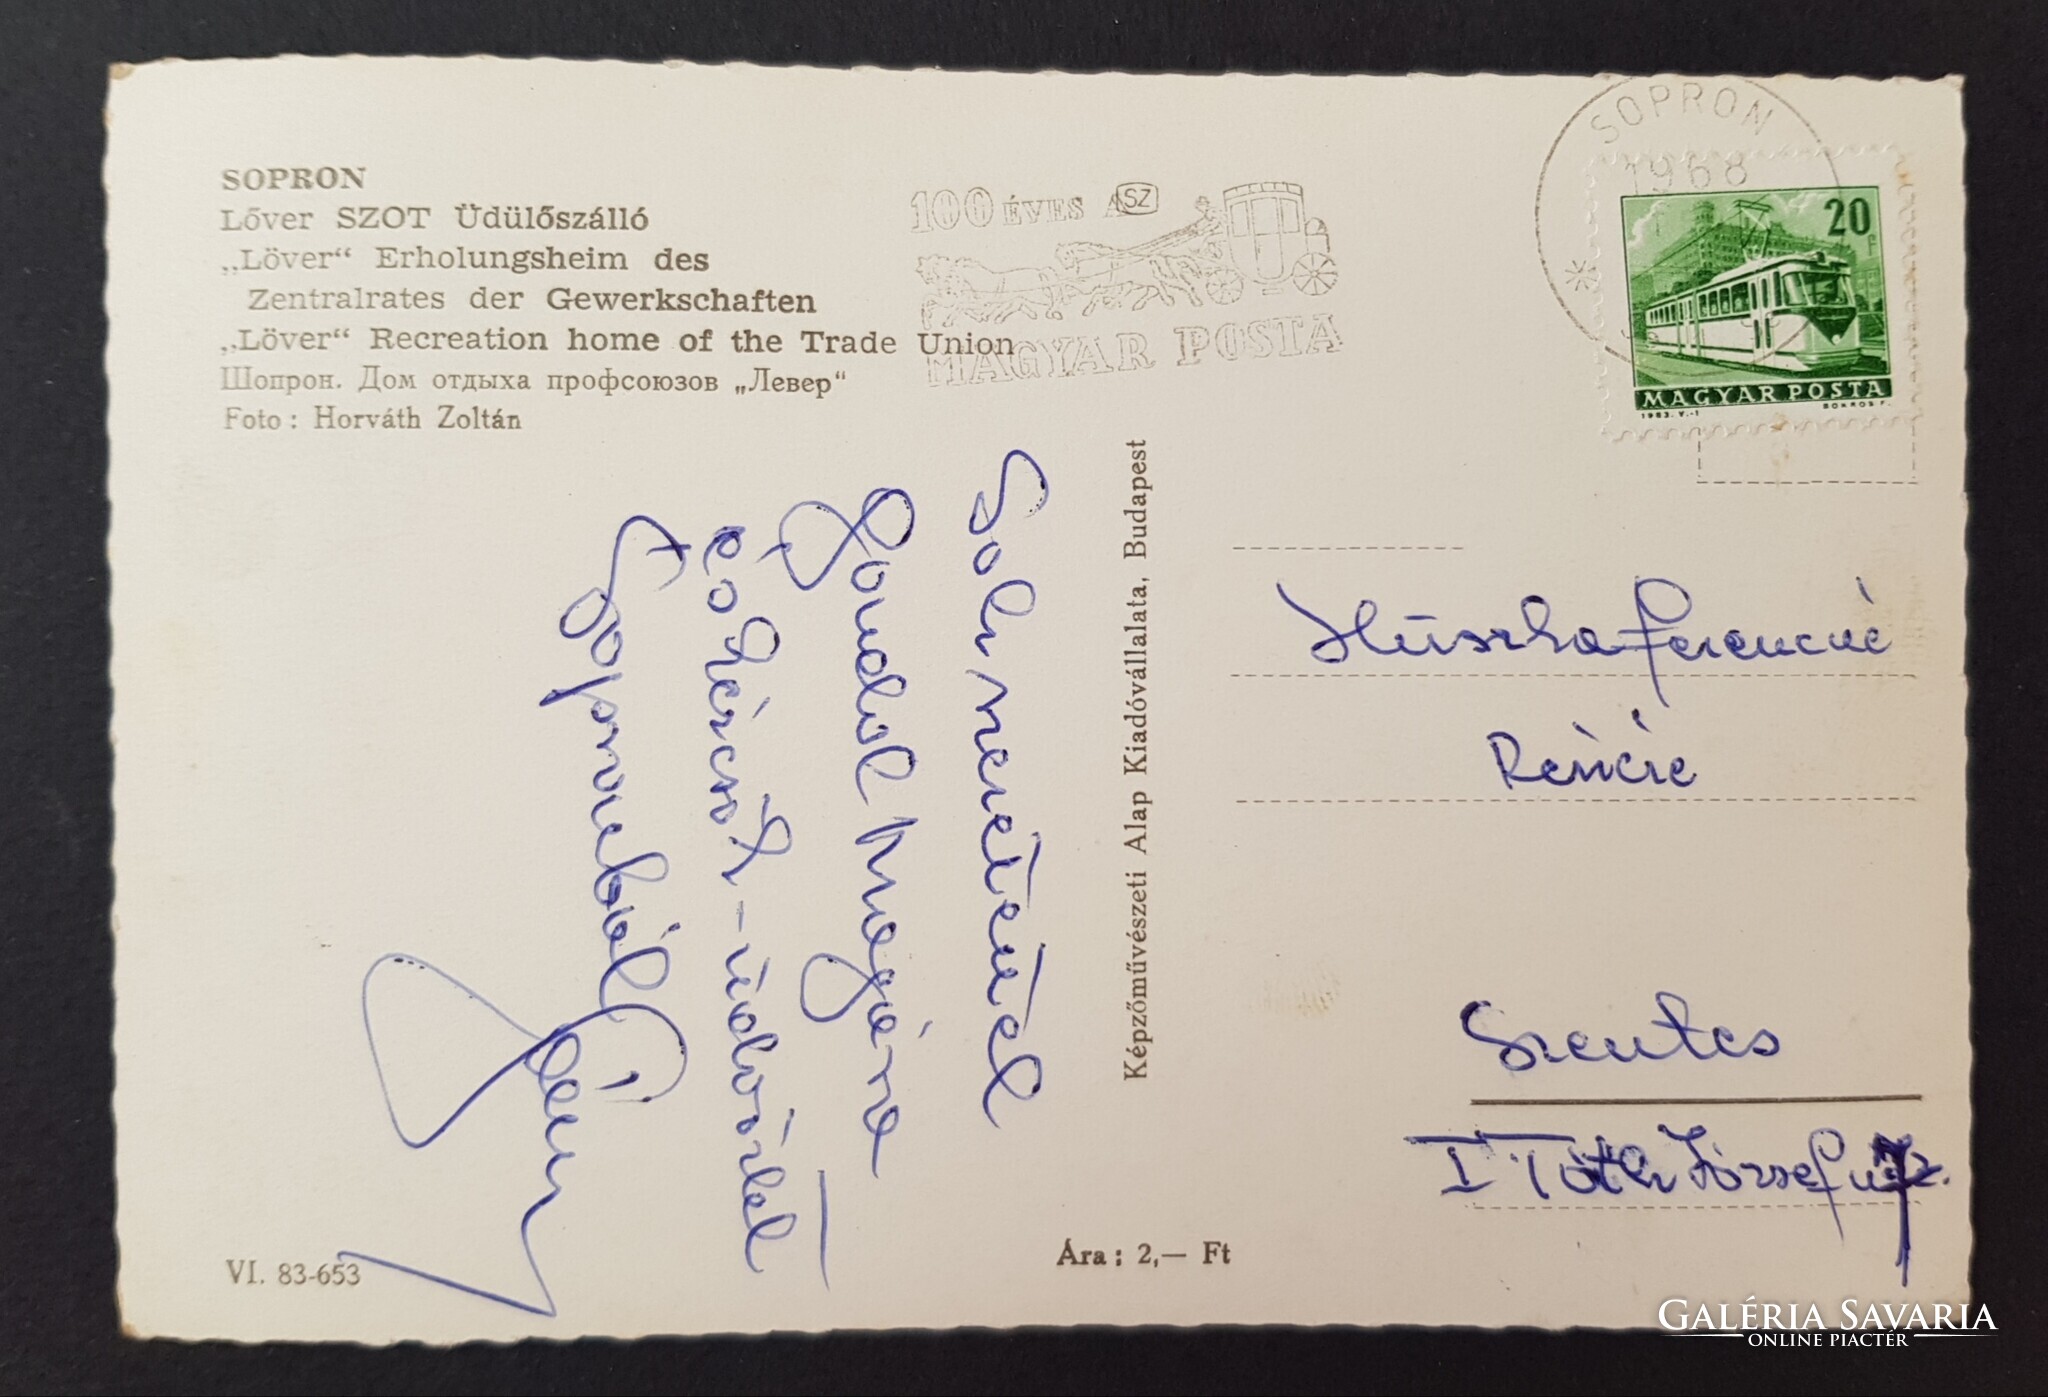 SOPRON
Lőver SZOT Üdülőszálló
„Löver“ Erholungsheim des
Zentralrates der Gewerkschaften
„Löver“ Recreation home of the Trade Union
Шопрон. Дом отдыха профсоюзов „Левер“
Foto : Horváth Zoltán
100 ÉVES A SZ
MAGYAR POSTA
SOPRON
1968
20 F
MAGYAR POSTA
1963. V.-1 BOKROS F.
Sok szeretettel
gondol Magára
és kézcsók-üdvözlet
Sopronból
Képzőművészeti Alap Kiadóvállalata, Budapest
Huszka Ferencné
Szentes
I Tóth József u
VI. 83-653
Ára : 2,— Ft
GALÉRIA SAVARIA
ONLINE PIACTÉR